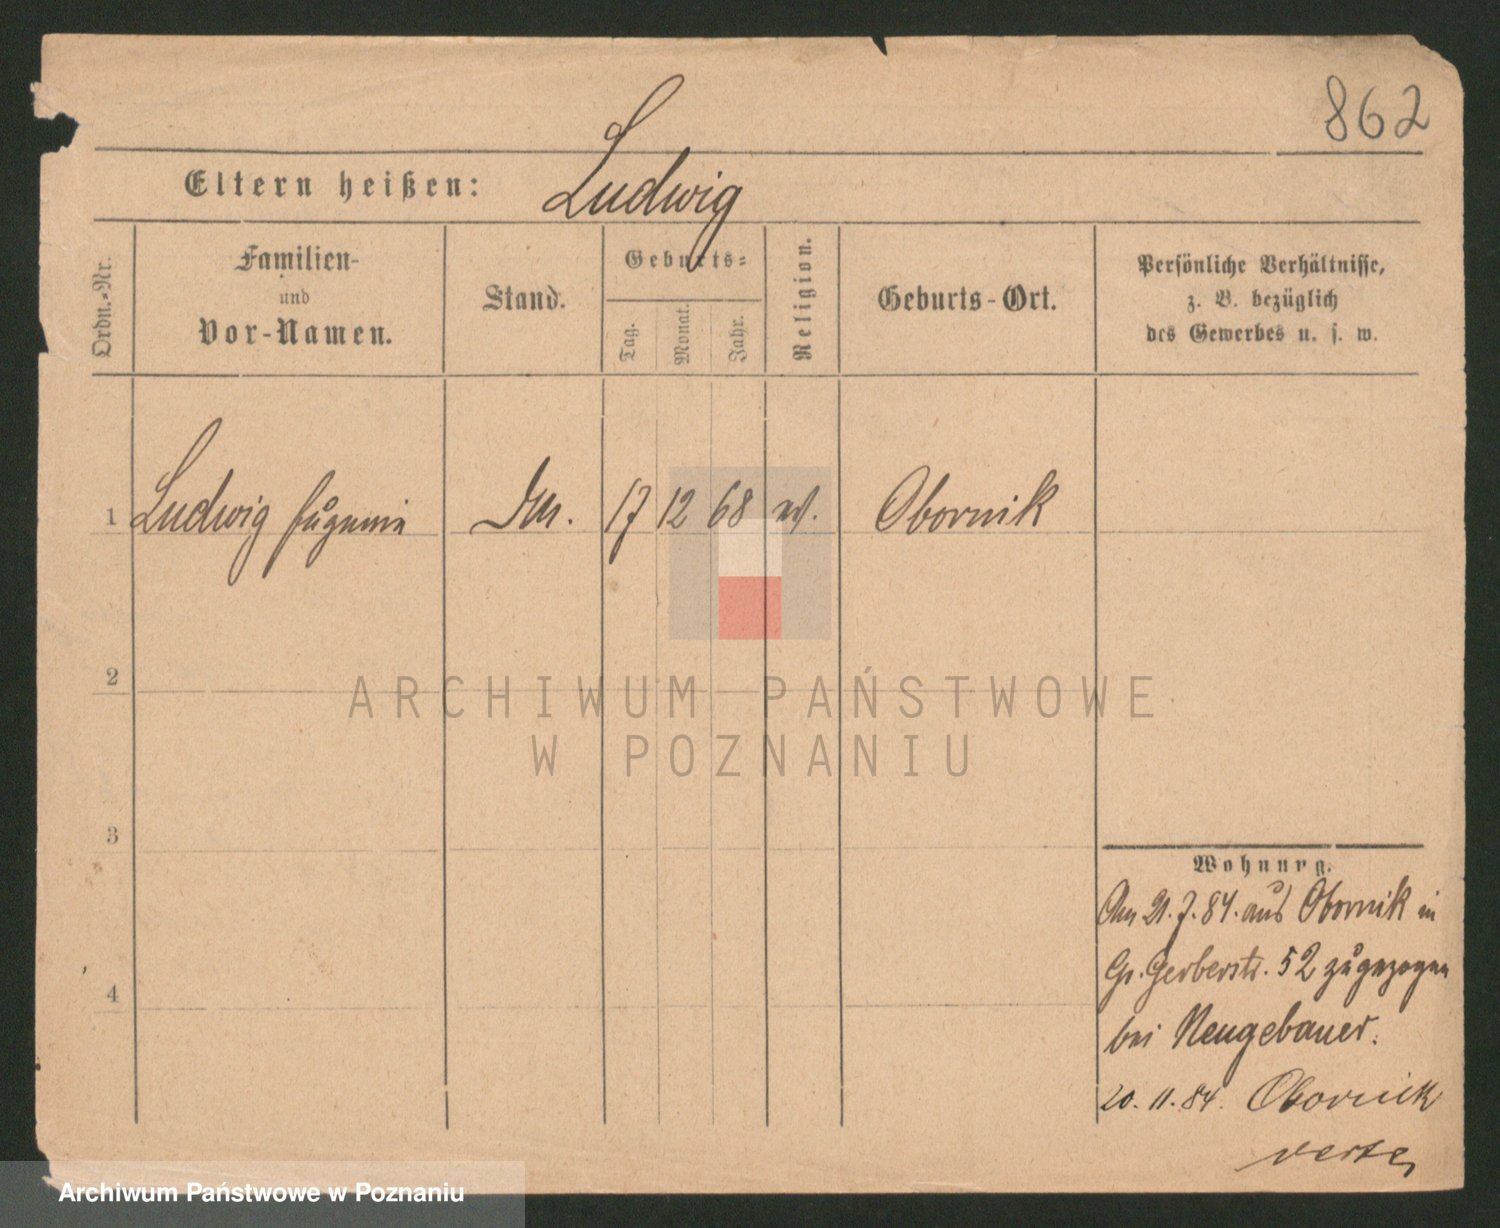 862
Eltern heißen: Ludwig
Ordn.-Nr.
Familien-
und
Vor-Namen.
Stand.
Geburts-
Tag.
Monat.
Jahr.
Religion.
Geburts-Ort.
Persönliche Verhältnisse,
z. B. bezüglich
des Gewerbes u. s. w.
1 Ludwig Eugenie 17 12 68 Obornik
2
3
4
ARCHIWUM PAŃSTWOWE
W POZNANIU
Wohnung.
Am 21.7.84. aus Obornik in
Gr. Gerberstr. 52 zugezogen
bei Neugebauer.
20.11.84. Obornik
Archiwum Państwowe w Poznaniu